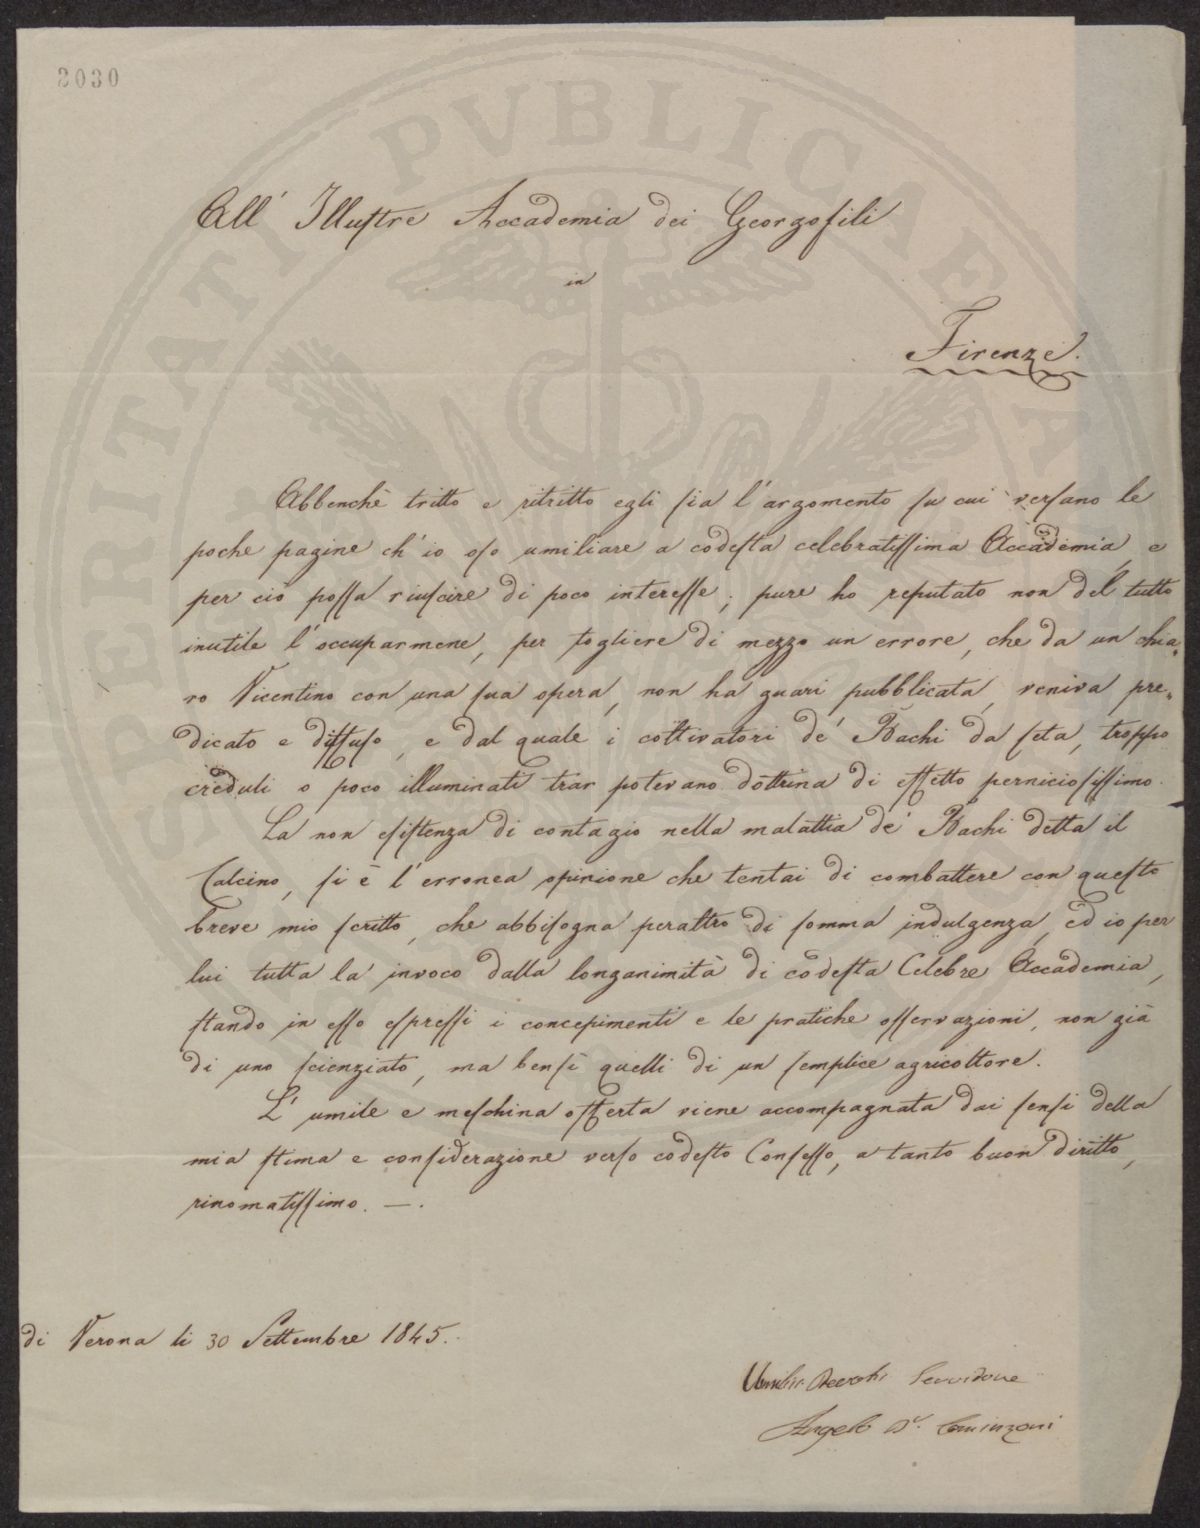 2030
PROSPERITATI PVBLICAE AV
All' Illustre Accademia dei Georgofili
in
Firenze.
Abbenchè tritto e ritritto egli sia l'argomento su cui versano le
poche pagine ch'io oso umiliare a codesta celebratissima Accademia, e
per ciò possa riuscire di poco interesse; pure ho reputato non del tutto
inutile l'occuparmene, per togliere di mezzo un errore, che da un chia„
ro Vicentino con una sua opera, non ha guari pubblicata, veniva pre„
dicato e diffuso, e dal quale i coltivatori de' Bachi da seta, troppo
creduli o poco illuminati trar potevano dottrina di effetto perniciosissimo.
La non esistenza di contagio nella malattia de' Bachi detta il
Calcino, si è l'erronea opinione che tentai di combattere con questo
breve mio scritto, che abbisogna peraltro di somma indulgenza, ed io per
lui tutta la invoco dalla longanimità di codesta Celebre Accademia,
stando in esso espressi i concepimenti e le pratiche osservazioni, non già
di uno scienziato, ma bensì quelli di un semplice agricoltore.
L'umile e meschina offerta viene accompagnata dai sensi della
mia stima e considerazione verso codesto Consesso, a tanto buon diritto,
rinomatissimo. —.
di Verona li 30 Settembre 1845.
Servidore
Angelo Dr.